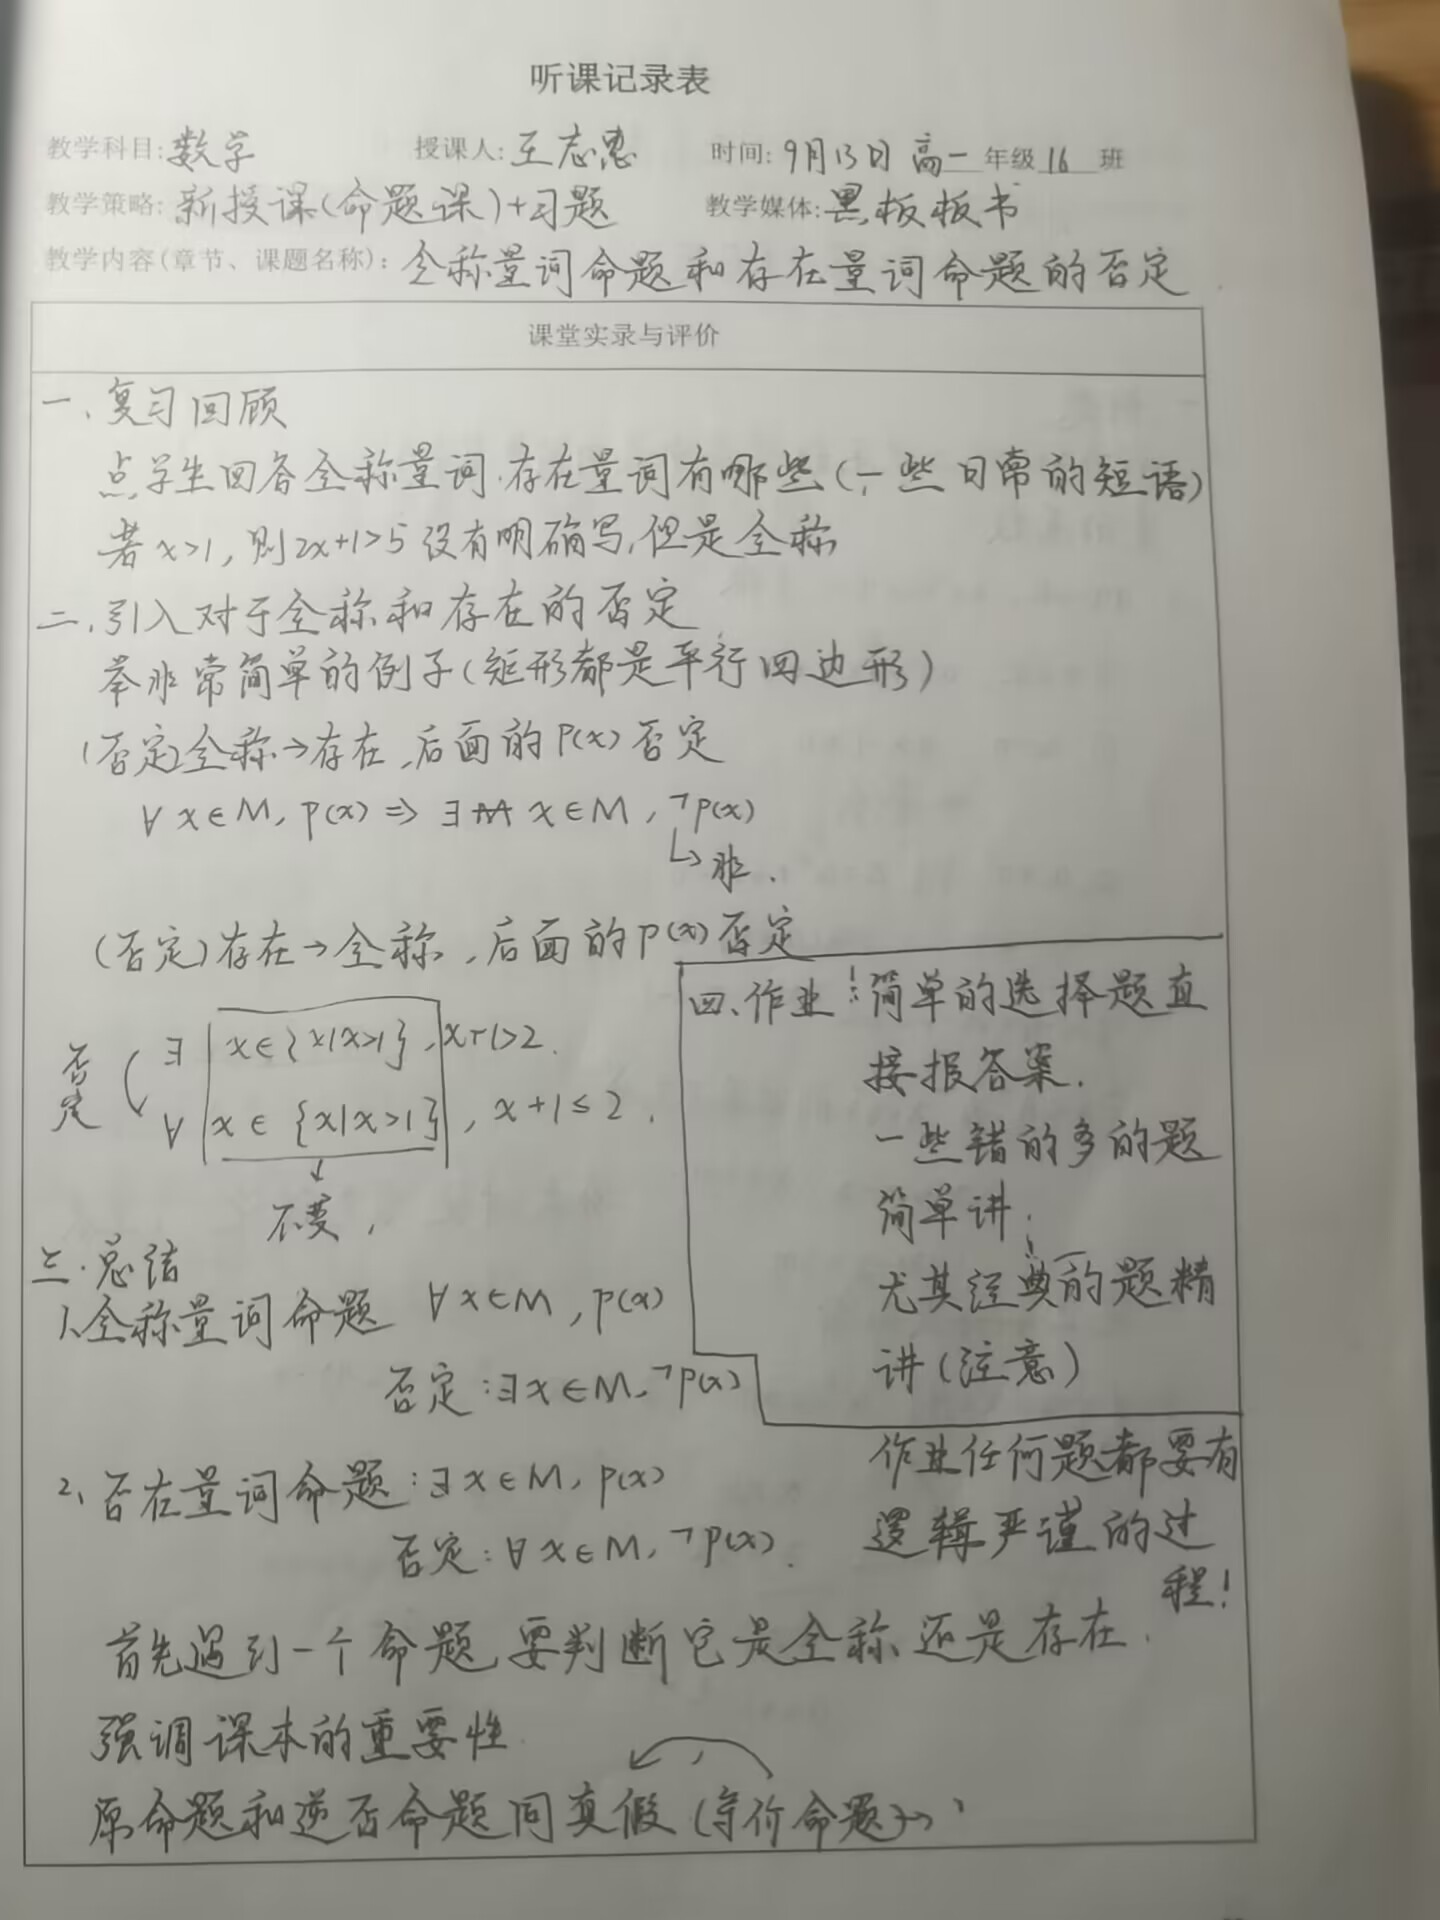 听课记录表
教学科目:数学 授课人:王志忠 时间:9月13日 高一年级16班
教学策略:新授课(命题课)+习题 教学媒体:黑板板书
教学内容(章节、课题名称):全称量词命题和存在量词命题的否定
课堂实录与评价
一、复习回顾
点学生回答全称量词、存在量词有哪些(一些日常的短语)
若x>1,则2x+1>5没有明确写,但是全称
二、引入对于全称和存在的否定
举非常简单的例子(矩形都是平行四边形)
(否定)全称→存在,后面的P(x)否定
∀x∈M, p(x) ⇒ ∃ x∈M, ¬p(x)
↳非.
(否定)存在→全称,后面的p(x)否定
否定 ∃ x∈{x|x>1}, x+1>2.
∀ x∈{x|x>1}, x+1≤2.
↓
不变,
三、总结
1、全称量词命题 ∀x∈M, p(x)
否定:∃x∈M, ¬p(x)
2、否在量词命题:∃x∈M, p(x)
否定:∀x∈M, ¬p(x).
四、作业:简单的选择题直
接报答案.
一些错的多的题
简单讲;
尤其经典的题精
讲(注意)
作业任何题都要有
逻辑严谨的过
程!
首先遇到一个命题,要判断它是全称还是存在.
强调课本的重要性
原命题和逆否命题同真假(等价命题)